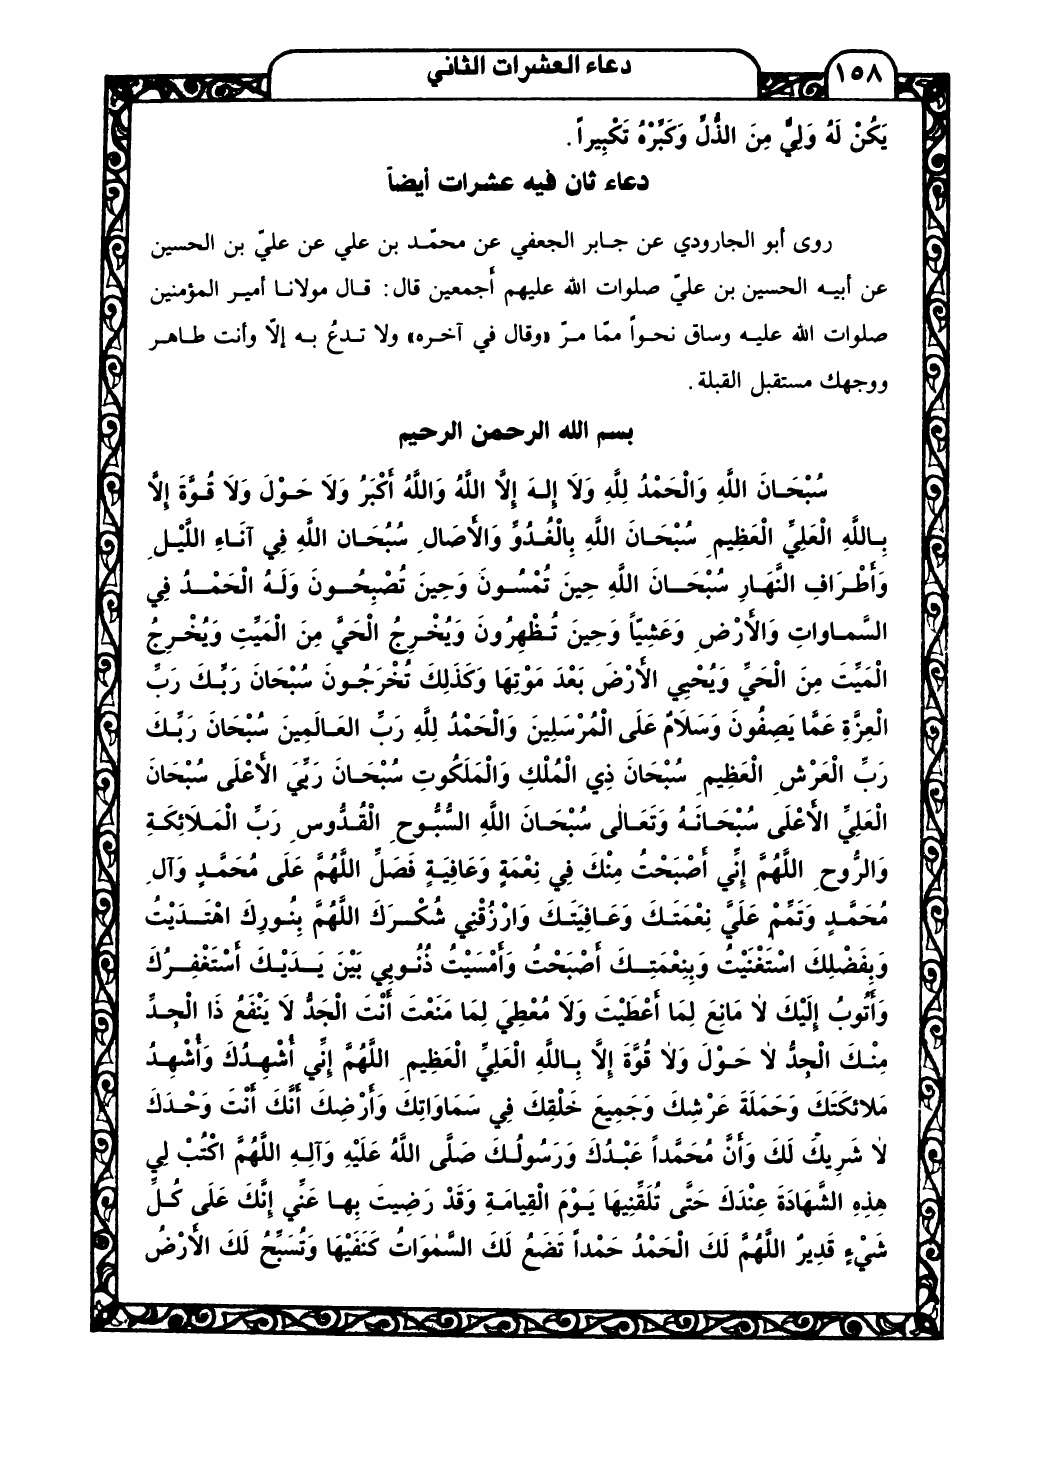 دعاء العشرات الثاني
١٥٨
يَكُنْ لَهُ وَلِيٌّ مِنَ الذُّلِّ وَكَبِّرْهُ تَكْبِيراً.
دعاء ثان فيه عشرات أيضاً
روى أبو الجارودي عن جابر الجعفي عن محمّد بن علي عن عليّ بن الحسين
عن أبيه الحسين بن عليّ صلوات الله عليهم أجمعين قال: قال مولانا أمير المؤمنين
صلوات الله عليه وساق نحواً ممّا مرّ «وقال في آخره» ولا تدعُ به إلاّ وأنت طاهر
ووجهك مستقبل القبلة.
بسم الله الرحمن الرحيم
سُبْحَانَ اللَّهِ وَالْحَمْدُ لِلَّهِ وَلَا إِلهَ إِلَّا اللَّهُ وَاللَّهُ أَكْبَرُ وَلَا حَوْلَ وَلَا قُوَّةَ إِلَّا
بِاللَّهِ الْعَلِيِّ الْعَظِيمِ سُبْحَانَ اللَّهِ بِالْغُدُوِّ وَالْأَصَالِ سُبْحَان اللَّهِ فِي آنَاءِ اللَّيْلِ
وَأَطْرَافِ النَّهَارِ سُبْحَانَ اللَّهِ حِينَ تُمْسُونَ وَحِينَ تُصْبِحُونَ وَلَهُ الْحَمْدُ فِي
السَّماوَاتِ وَالْأَرْضِ وَعَشِيّاً وَحِينَ تُظْهِرُونَ وَيُخْرِجُ الْحَيَّ مِنَ الْمَيِّتِ وَيُخْرِجُ
الْمَيِّتَ مِنَ الْحَيِّ وَيُحْيِي الأَرْضَ بَعْدَ مَوْتِهَا وَكَذَلِكَ تُخْرَجُونَ سُبْحَانَ رَبِّكَ رَبِّ
الْعِزَّةِ عَمَّا يَصِفُونَ وَسَلَامٌ عَلَى الْمُرْسَلِينَ وَالْحَمْدُ لِلَّهِ رَبِّ العَالَمِينَ سُبْحَانَ رَبِّكَ
رَبِّ الْعَرْشِ الْعَظِيمِ سُبْحَانَ ذِي الْمُلْكِ وَالْمَلَكُوتِ سُبْحَانَ رَبِّيَ الأَعْلَى سُبْحَانَ
الْعَلِيِّ الأَعْلَى سُبْحَانَهُ وَتَعَالٰى سُبْحَانَ اللَّهِ السُّبُّوحِ الْقُدُّوسِ رَبِّ الْمَلَائِكَةِ
وَالرُّوحِ اللَّهُمَّ إِنِّي أَصْبَحْتُ مِنْكَ فِي نِعْمَةٍ وَعَافِيَةٍ فَصَلِّ اللَّهُمَّ عَلَى مُحَمَّدٍ وَآلِ
مُحَمَّدٍ وَتَمِّمْ عَلَيَّ نِعْمَتَكَ وَعَافِيَتَكَ وَارْزُقْنِي شُكْرَكَ اللَّهُمَّ بِنُورِكَ اهْتَدَيْتُ
وَبِفَضْلِكَ اسْتَغْنَيْتُ وَبِنِعْمَتِكَ أَصْبَحْتُ وَأَمْسَيْتُ ذُنُوبِي بَيْنَ يَدَيْكَ أَسْتَغْفِرُكَ
وَأَتُوبُ إِلَيْكَ لَا مَانِعَ لِمَا أَعْطَيْتَ وَلَا مُعْطِيَ لِمَا مَنَعْتَ أَنْتَ الْجَدُّ لَا يَنْفَعُ ذَا الْجِدِّ
مِنْكَ الْجِدُّ لَا حَوْلَ وَلَا قُوَّةَ إِلَّا بِاللَّهِ الْعَلِيِّ الْعَظِيمِ اللَّهُمَّ إِنِّي أُشْهِدُكَ وَأُشْهِدُ
مَلَائِكَتَكَ وَحَمَلَةَ عَرْشِكَ وَجَمِيعَ خَلْقِكَ فِي سَمَاوَاتِكَ وَأَرْضِكَ أَنَّكَ أَنْتَ وَحْدَكَ
لَا شَرِيكَ لَكَ وَأَنَّ مُحَمَّداً عَبْدُكَ وَرَسُولُكَ صَلَّى اللَّهُ عَلَيْهِ وَآلِهِ اللَّهُمَّ اكْتُبْ لِي
هذِهِ الشَّهَادَةَ عِنْدَكَ حَتَّى تُلَقِّنِيهَا يَوْمَ الْقِيامَةِ وَقَدْ رَضِيتَ بِها عَنِّي إِنَّكَ عَلَى كُلِّ
شَيْءٍ قَدِيرٌ اللَّهُمَّ لَكَ الْحَمْدُ حَمْداً تَضَعُ لَكَ السَّمٰوَاتُ كَنَفَيْهَا وَتُسَبِّحُ لَكَ الأَرْضُ